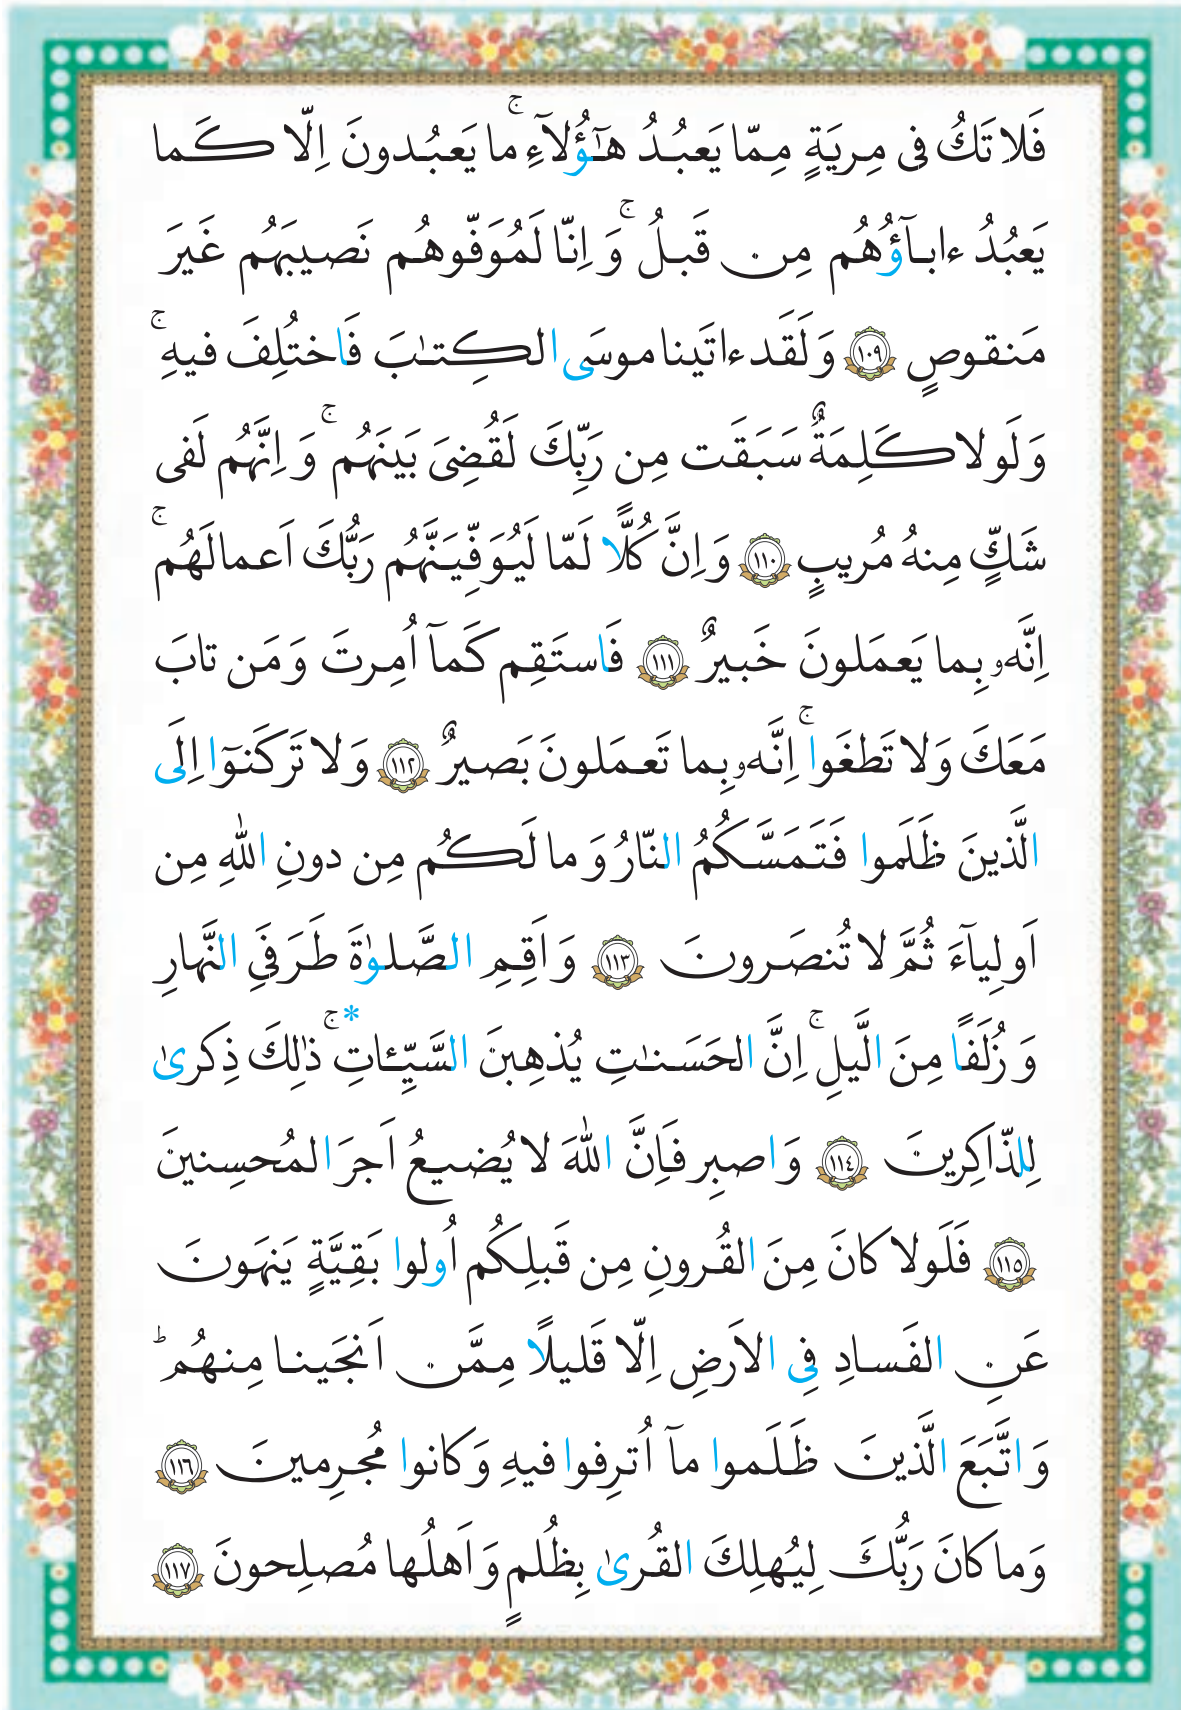 فَلا تَكُ فى مِريَةٍ مِمّا يَعبُدُ هـٰٓؤُلآءِ ۚ ما يَعبُدونَ اِلّا كَما
يَعبُدُ ءابآؤُهُم مِن قَبلُ ۚ وَ اِنّا لَمُوَفّوهُم نَصيبَهُم غَيرَ
مَنقوصٍ ﴿١٠٩﴾ وَ لَقَد ءاتَينا موسَى الكِتـٰبَ فَاختُلِفَ فيهِ ۚ
وَ لَولا كَلِمَةٌ سَبَقَت مِن رَبِّكَ لَقُضِىَ بَينَهُم ۚ وَ اِنَّهُم لَفى
شَكٍّ مِنهُ مُريبٍ ﴿١١٠﴾ وَ اِنَّ كُلًّا لَمّا لَيُوَفِّيَنَّهُم رَبُّكَ اَعمالَهُم ۚ
اِنَّهۥ بِما يَعمَلونَ خَبيرٌ ﴿١١١﴾ فَاستَقِم كَمآ اُمِرتَ وَ مَن تابَ
مَعَكَ وَلا تَطغَوا ۚ اِنَّهۥ بِما تَعمَلونَ بَصيرٌ ﴿١١٢﴾ وَلا تَركَنوٓا اِلَى
الَّذينَ ظَلَموا فَتَمَسَّكُمُ النّارُ وَ ما لَكُم مِن دونِ اللّٰهِ مِن
اَولِيآءَ ثُمَّ لا تُنصَرونَ ﴿١١٣﴾ وَ اَقِمِ الصَّلوٰةَ طَرَفَىِ النَّهارِ
وَ زُلَفًا مِنَ الَّيلِ ۚ اِنَّ الحَسَنـٰتِ يُذهِبنَ السَّيِّـٔاتِ ۚ * ذٰلِكَ ذِكرىٰ
لِلذّاكِرينَ ﴿١١٤﴾ وَ اصبِر فَاِنَّ اللّٰهَ لا يُضيعُ اَجرَ المُحسِنينَ
﴿١١٥﴾ فَلَولا كانَ مِنَ القُرونِ مِن قَبلِكُم اُولوا بَقِيَّةٍ يَنهَونَ
عَنِ الفَسادِ فِى الاَرضِ اِلّا قَليلًا مِمَّن اَنجَينا مِنهُم ؕ
وَ اتَّبَعَ الَّذينَ ظَلَموا مآ اُترِفوا فيهِ وَ كانوا مُجرِمينَ ﴿١١٦﴾
وَ ما كانَ رَبُّكَ لِيُهلِكَ القُرىٰ بِظُلمٍ وَ اَهلُها مُصلِحونَ ﴿١١٧﴾